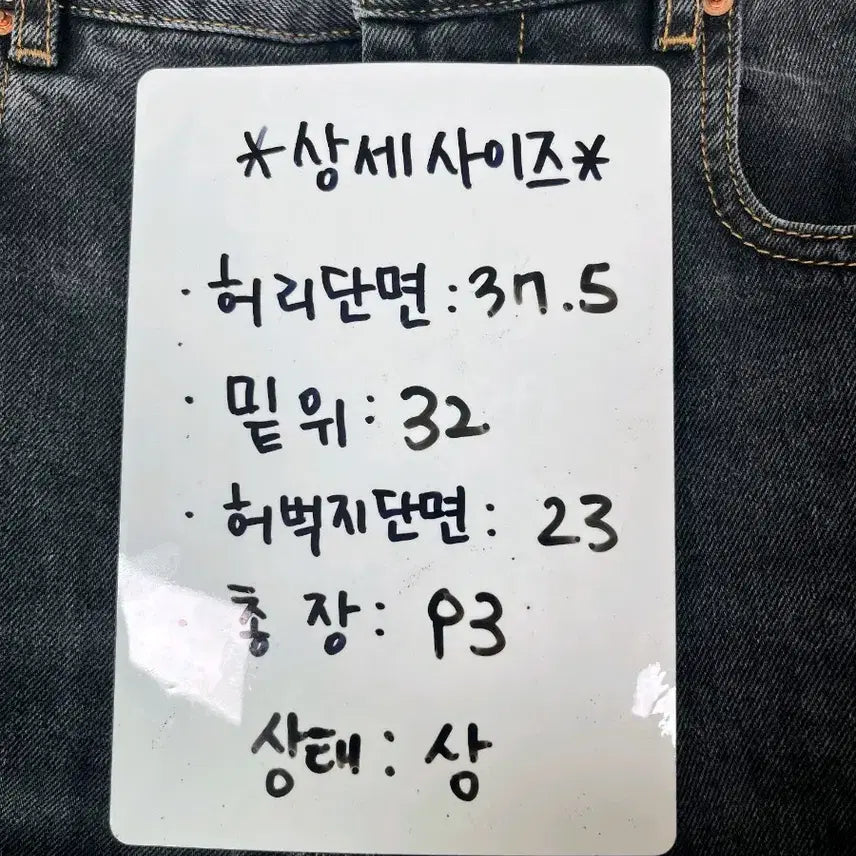 *상세사이즈*
· 허리단면 : 37.5
· 밑위 : 32
· 허벅지단면 : 23
총장 : 93
상태 : 상